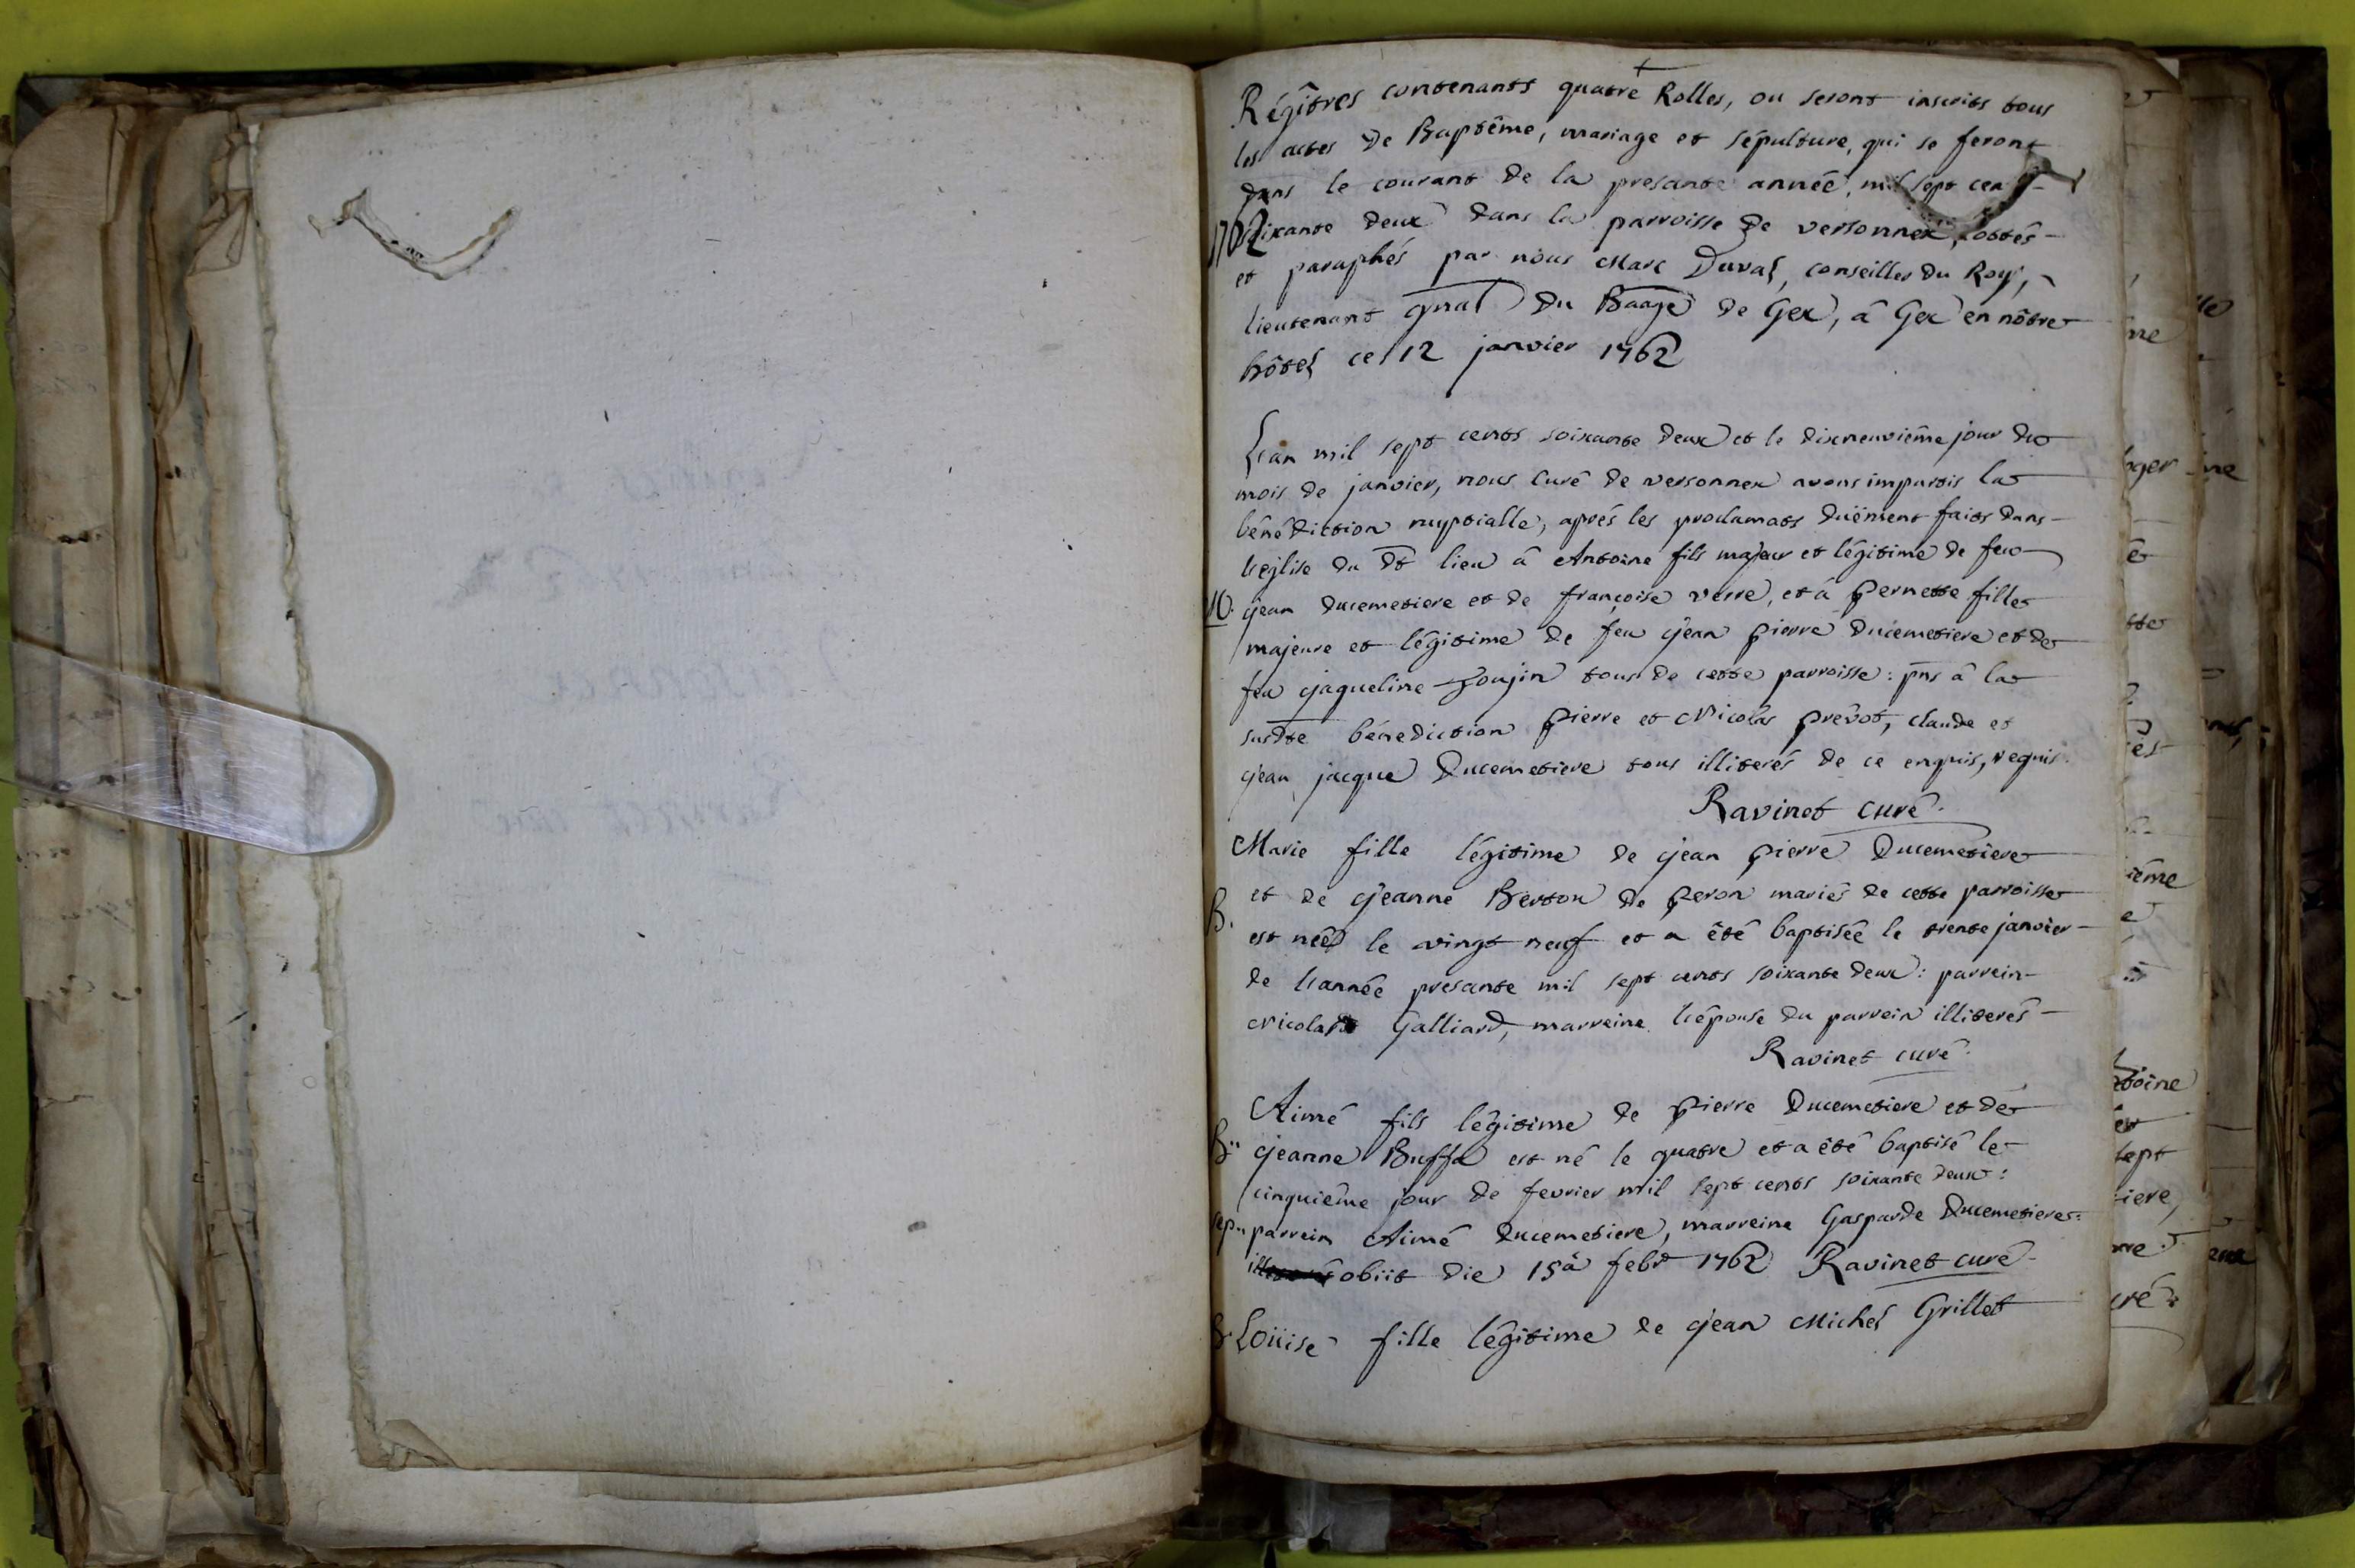 Régîtres contenants quatre Rolles, ou seront inscrits tous
les actes de Baptême, mariage et sépulture, qui se feront
dans le courant de la presante année, mil sept cen
1762
soixante deux dans la parroisse de versonnex, cottés
et paraphés par nous Marc Duval, conseiller du Roy,
lieutenant gnal du Baage de Gex, â Gex en nôtre
hôtel ce 12 janvier 1762
L'an mil sept cents soixante deux et le dixneuvième jour du
mois de janvier, nous Curé de versonnex avons impartis la
bénédiction nuptialle, aprés les proclamats düement faits dans
l'eglise du dt lieu â Antoine fils majeur et légitime de feu
M. jean Ducemetiere et de françoise verre, et â Pernette fille
majeure et légitime de feu jean pierre Ducemetiere et de
feu jaqueline Goujin tous de cette parroisse: pns â la
susdte bénediction Pierre et Nicolas prévot, claude et
jean jacque Ducemetiere tous illiterés de ce enquis, requis.
Ravinet curé.
Marie fille légitime de jean pierre Ducemetiere
B. et de jeanne Berton de Peron mariés de cette parroisse
est née le vingt neuf et a été baptisée le trente janvier
de l'année presante mil sept cents soixante deux: parrein
Nicolas Galliard, marreine l'épouse du parrein illiterés
Ravinet curé.
Aimé fils légitime de Pierre Ducemetiere et de
B. jeanne Buffa est né le quatre et a été baptisé le
cinquième jour de fevrier mil sept cents soixante deux:
sep. parrein Aimé Ducemetiere, marreine Gasparde Ducemetiere:
obiit die 15â febr 1762 Ravinet curé.
B. Loüise fille légitime de jean Michel Grillet